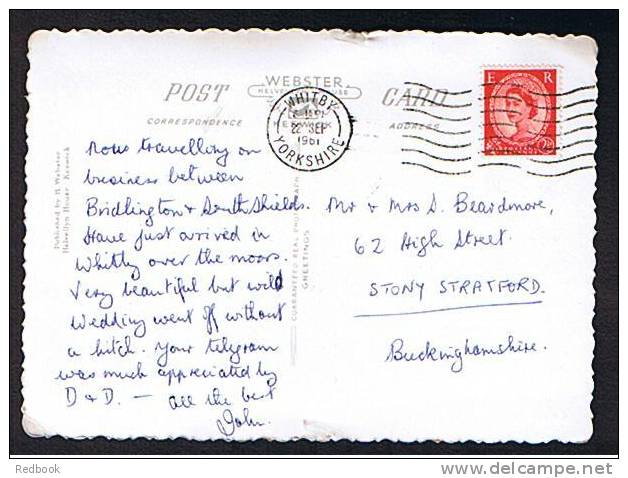 POST
WEBSTER
CARD
CORRESPONDENCE
ADDRESS
WHITBY
22 SEP
1961
YORKSHIRE
E R
Now travelling on
business between
Bridlington & South Shields.
Have just arrived in
Whitby over the moors.
Very beautiful but wild
Wedding went off without
a hitch. Your telegram
was much appreciated by
D & D. — all the best
John.
Published by H. Webster
Helvellyn House Keswick
GUARANTEED REAL PHOTOGRAPH
GREETINGS
Mr & Mrs S. Beardmore,
62 High Street.
STONY STRATFORD.
Buckinghamshire.
Redbook
www.delcampe.net